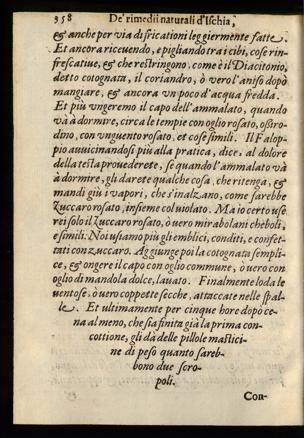 958 De' rimedii naturali d'Ischia,
& anche per via di fricationi leggiermente fatte.
Et ancora riceuendo, e pigliando tra i cibi, cose rin-
frescatiue, & che restringono, come è il Diacitonio,
detto cotognata, il coriandro, ò vero l'aniso dopò
mangiare, & ancora vn poco d'acqua fredda.
Et più vngeremo il capo dell'ammalato, quando
và à dormire, circa le tempie con oglio rosato, oßiro-
dino, con vnguento rosato, et cose simili. Il Falop-
pio auuicinandosi più alla pratica, dice, al dolore
della testa prouederete, se quando l'ammalato và
à dormire, gli darete qualche cosa, che ritenga, &
mandi giù i vapori, che s'inalzano, come sarebbe
zuccaro rosato, insieme col uiolato. Ma io certo use
rei solo il zuccaro rosato, ò uero mirabolani cheboli,
e simili. Noi usiamo più gli emblici, conditi, e confet-
tati con zuccaro. Aggiunge poi la cotognata sempli-
ce, & ongere il capo con oglio commune, ò uero con
oglio di mandola dolce, lauato. Finalmente loda le
uentose, ò uero coppette secche, attaccate nelle spal-
le. Et ultimamente per cinque hore dopò ce-
na al meno, che sia finita già la prima con-
cottione, gli dà delle pillole mastici-
ne di peso quanto sareb-
bono due scro-
poli.
Con-